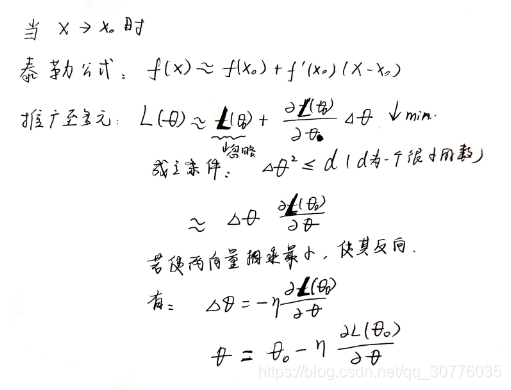 当 x → x₀ 时
泰勒公式: f(x) ≈ f(x₀) + f'(x₀) (x-x₀)
推广至多元: L(θ) ≈ L(θ₀) + ∂L(θ₀)/∂θ₀ Δθ ↓ min.
忽略
成立条件: Δθ² ≤ d (d为一个很小的数)
≈ Δθ ∂L(θ₀)/∂θ
若使两向量相乘最小, 使其反向.
有: Δθ = -η ∂L(θ₀)/∂θ
θ = θ₀ - η ∂L(θ₀)/∂θ
https://blog.csdn.net/qq_30776035